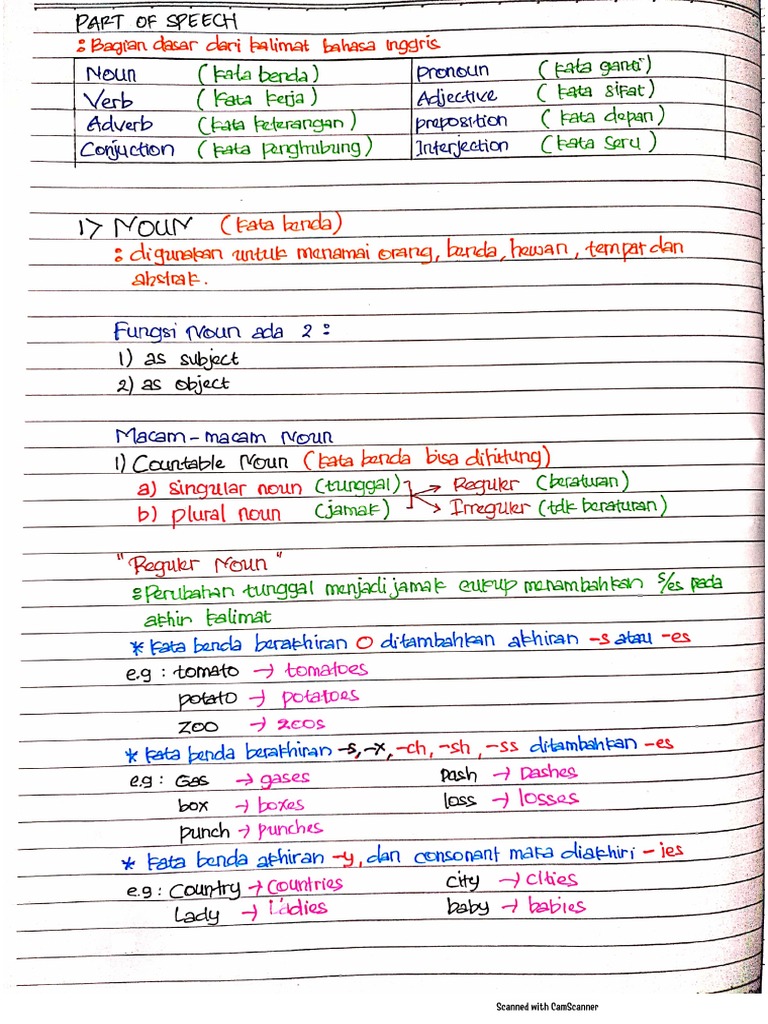 PART OF SPEECH
: Bagian dasar dari kalimat bahasa Inggris
Noun (kata benda) Pronoun (kata ganti)
Verb (kata kerja) Adjective (kata sifat)
Adverb (kata keterangan) preposition (kata depan)
Conjuction (kata penghubung) Interjection (kata seru)
1> NOUN (kata benda)
: digunakan untuk menamai orang, benda, hewan, tempat dan
abstrak.
Fungsi Noun ada 2 :
1) as subject
2) as object
Macam-macam Noun
1) Countable Noun (kata benda bisa dihitung)
a) singular noun (tunggal) → Reguler (beraturan)
b) plural noun (jamak) → Irreguler (tdk beraturan)
"Reguler Noun"
: Perubahan tunggal menjadi jamak cukup menambahkan s/es pada
akhir kalimat
* kata benda berakhiran O ditambahkan akhiran -s atau -es
e.g : tomato → tomatoes
potato → potatoes
zoo → zoos
* kata benda berakhiran -s, -x, -ch, -sh, -ss ditambahkan -es
e.g : Gas → gases Dash → Dashes
box → boxes loss → losses
punch → punches
* kata benda akhiran -y, dan consonant maka diakhiri -ies
e.g : Country → Countries city → cities
Lady → Ladies baby → babies
Scanned with CamScanner